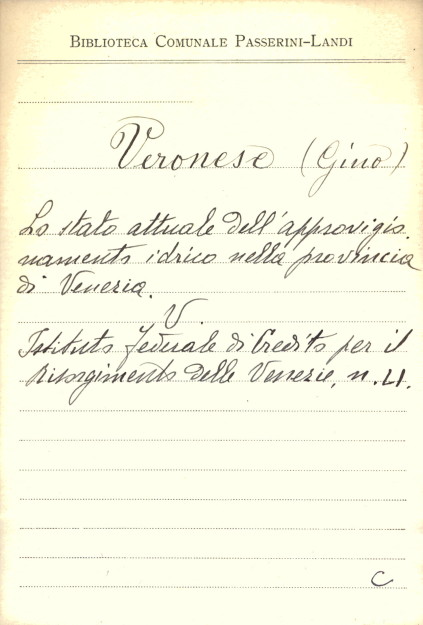 BIBLIOTECA COMUNALE PASSERINI-LANDI
Veronese (Gino)
Lo stato attuale dell'approvigio.
namento idrico nella provincia
di Venezia.
V.
Istituto Federale di Credito per il
Risorgimento delle Venezie, n. 41.
C